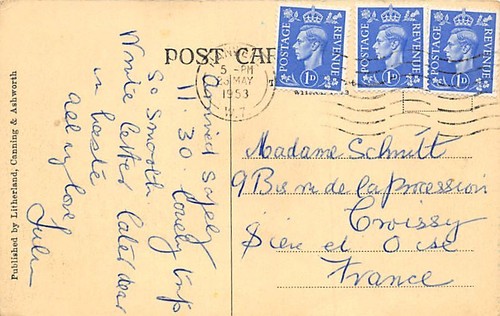 POST CAR
POSTAGE REVENUE
1D
POSTAGE REVENUE
1D
POSTAGE REVENUE
1D
5 - PM
MAY
1953
W.1
arrived safely
11.30. Lovely trip
So smooth.
Write letter later dear
in haste
all my love
Madame Schmitt
9 Bis rue de la Procession
Croissy
Sine et Oise
France
Published by Litherland, Canning & Ashworth